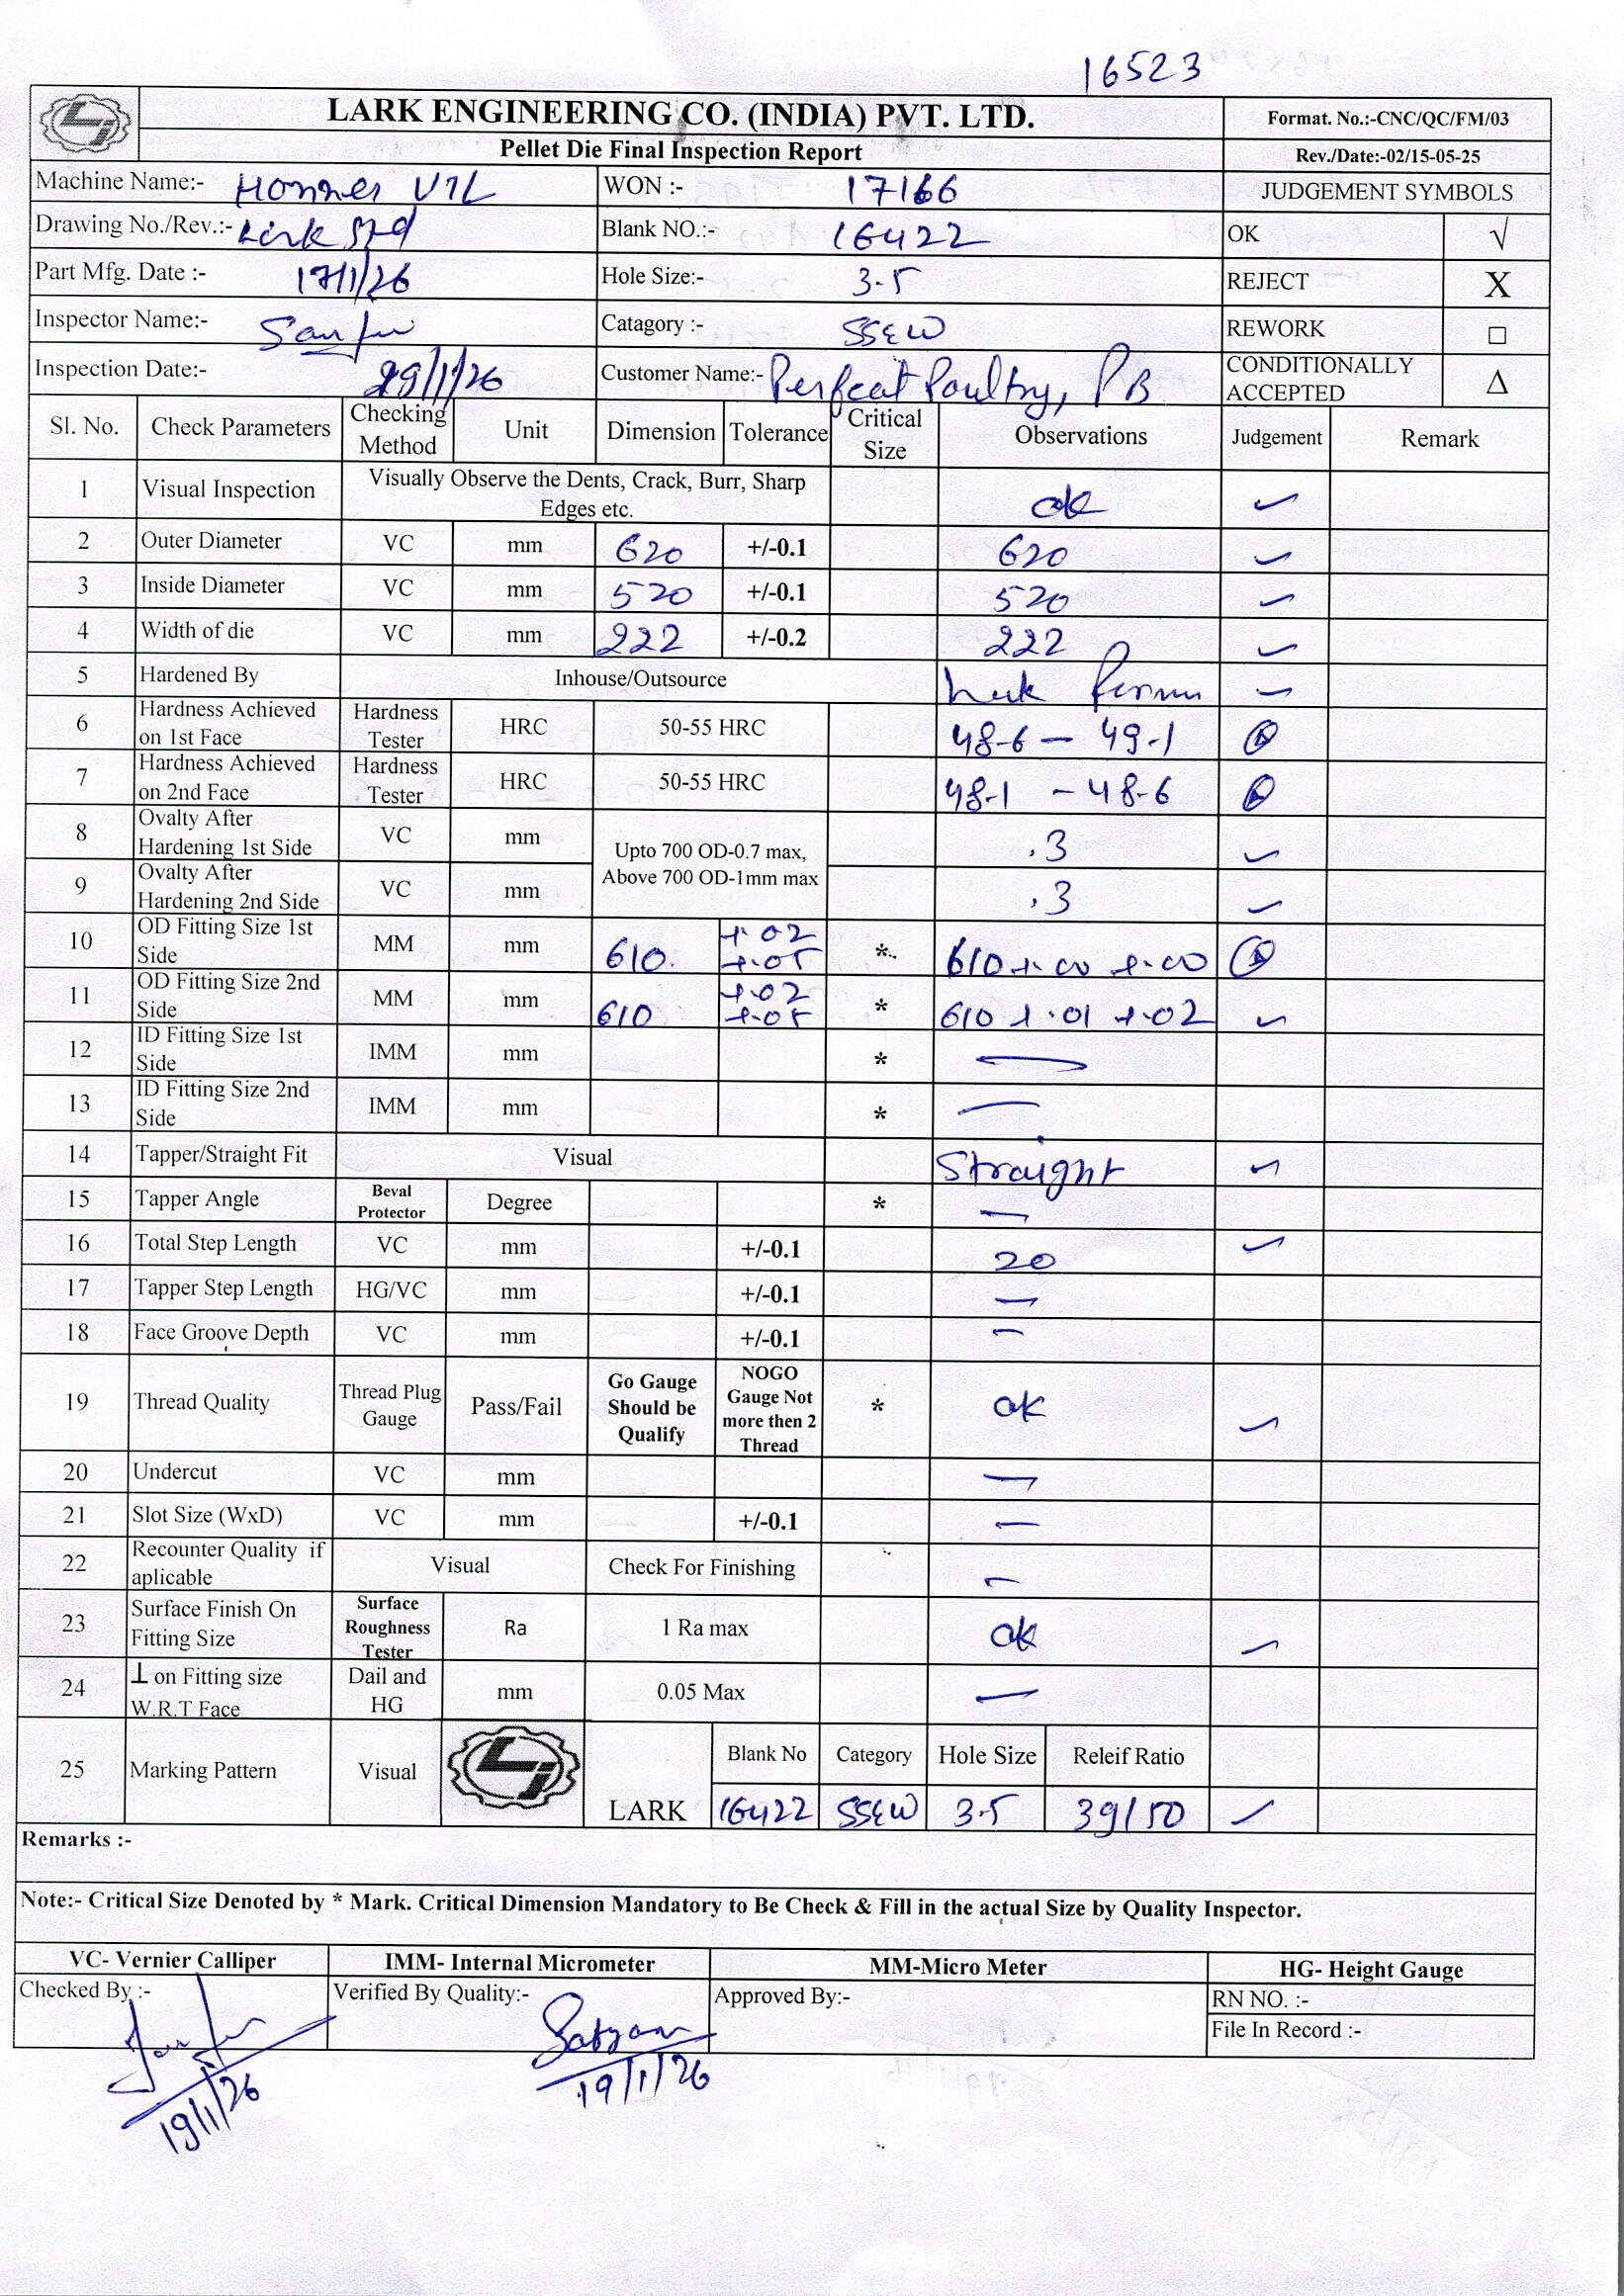 16523
LARK ENGINEERING CO. (INDIA) PVT. LTD.
Format. No.:-CNC/QC/FM/03
Pellet Die Final Inspection Report
Rev./Date:-02/15-05-25
Machine Name:- VTL WON :- 17166 JUDGEMENT SYMBOLS
Drawing No./Rev.:- Lark Std Blank NO.:- 16422 OK √
Part Mfg. Date :- 17/1/26 Hole Size:- 3.5 REJECT X
Inspector Name:- Catagory :- SSEW REWORK □
Inspection Date:- 19/1/26 Customer Name:- Perfect Poultry, PB CONDITIONALLY ACCEPTED Δ
Sl. No. Check Parameters Checking Method Unit Dimension Tolerance Critical Size Observations Judgement Remark
1 Visual Inspection Visually Observe the Dents, Crack, Burr, Sharp Edges etc. ok ✓
2 Outer Diameter VC mm 620 +/-0.1 620 ✓
3 Inside Diameter VC mm 520 +/-0.1 520 ✓
4 Width of die VC mm 222 +/-0.2 222 ✓
5 Hardened By Inhouse/Outsource ✓
6 Hardness Achieved on 1st Face Hardness Tester HRC 50-55 HRC 48-6 - 49-1
7 Hardness Achieved on 2nd Face Hardness Tester HRC 50-55 HRC 48-1 - 48-6
8 Ovalty After Hardening 1st Side VC mm Upto 700 OD-0.7 max, Above 700 OD-1mm max .3 ✓
9 Ovalty After Hardening 2nd Side VC mm .3 ✓
10 OD Fitting Size 1st Side MM mm 610 +.02 +.05 * 610 +.00 +.00
11 OD Fitting Size 2nd Side MM mm 610 +.02 +.05 * 610 +.01 +.02 ✓
12 ID Fitting Size 1st Side IMM mm * —
13 ID Fitting Size 2nd Side IMM mm * —
14 Tapper/Straight Fit Visual Straight ✓
15 Tapper Angle Beval Protector Degree * —
16 Total Step Length VC mm +/-0.1 20 ✓
17 Tapper Step Length HG/VC mm +/-0.1 —
18 Face Groove Depth VC mm +/-0.1 —
19 Thread Quality Thread Plug Gauge Pass/Fail Go Gauge Should be Qualify NOGO Gauge Not more then 2 Thread * ok ✓
20 Undercut VC mm —
21 Slot Size (WxD) VC mm +/-0.1 —
22 Recounter Quality if aplicable Visual Check For Finishing —
23 Surface Finish On Fitting Size Surface Roughness Tester Ra 1 Ra max ok ✓
24 ⊥ on Fitting size W.R.T Face Dail and HG mm 0.05 Max —
25 Marking Pattern Visual LARK Blank No Category Hole Size Releif Ratio
16422 SSEW 3.5 39/50 ✓
Remarks :-
Note:- Critical Size Denoted by * Mark. Critical Dimension Mandatory to Be Check & Fill in the actual Size by Quality Inspector.
VC- Vernier Calliper IMM- Internal Micrometer MM-Micro Meter HG- Height Gauge
Checked By :- Verified By Quality:- Satyam Approved By:- RN NO. :-
File In Record :-
19/1/26 19/1/26